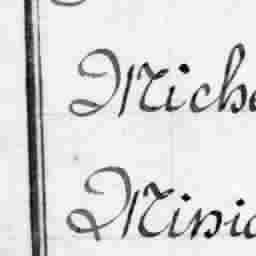 Miche
Minic